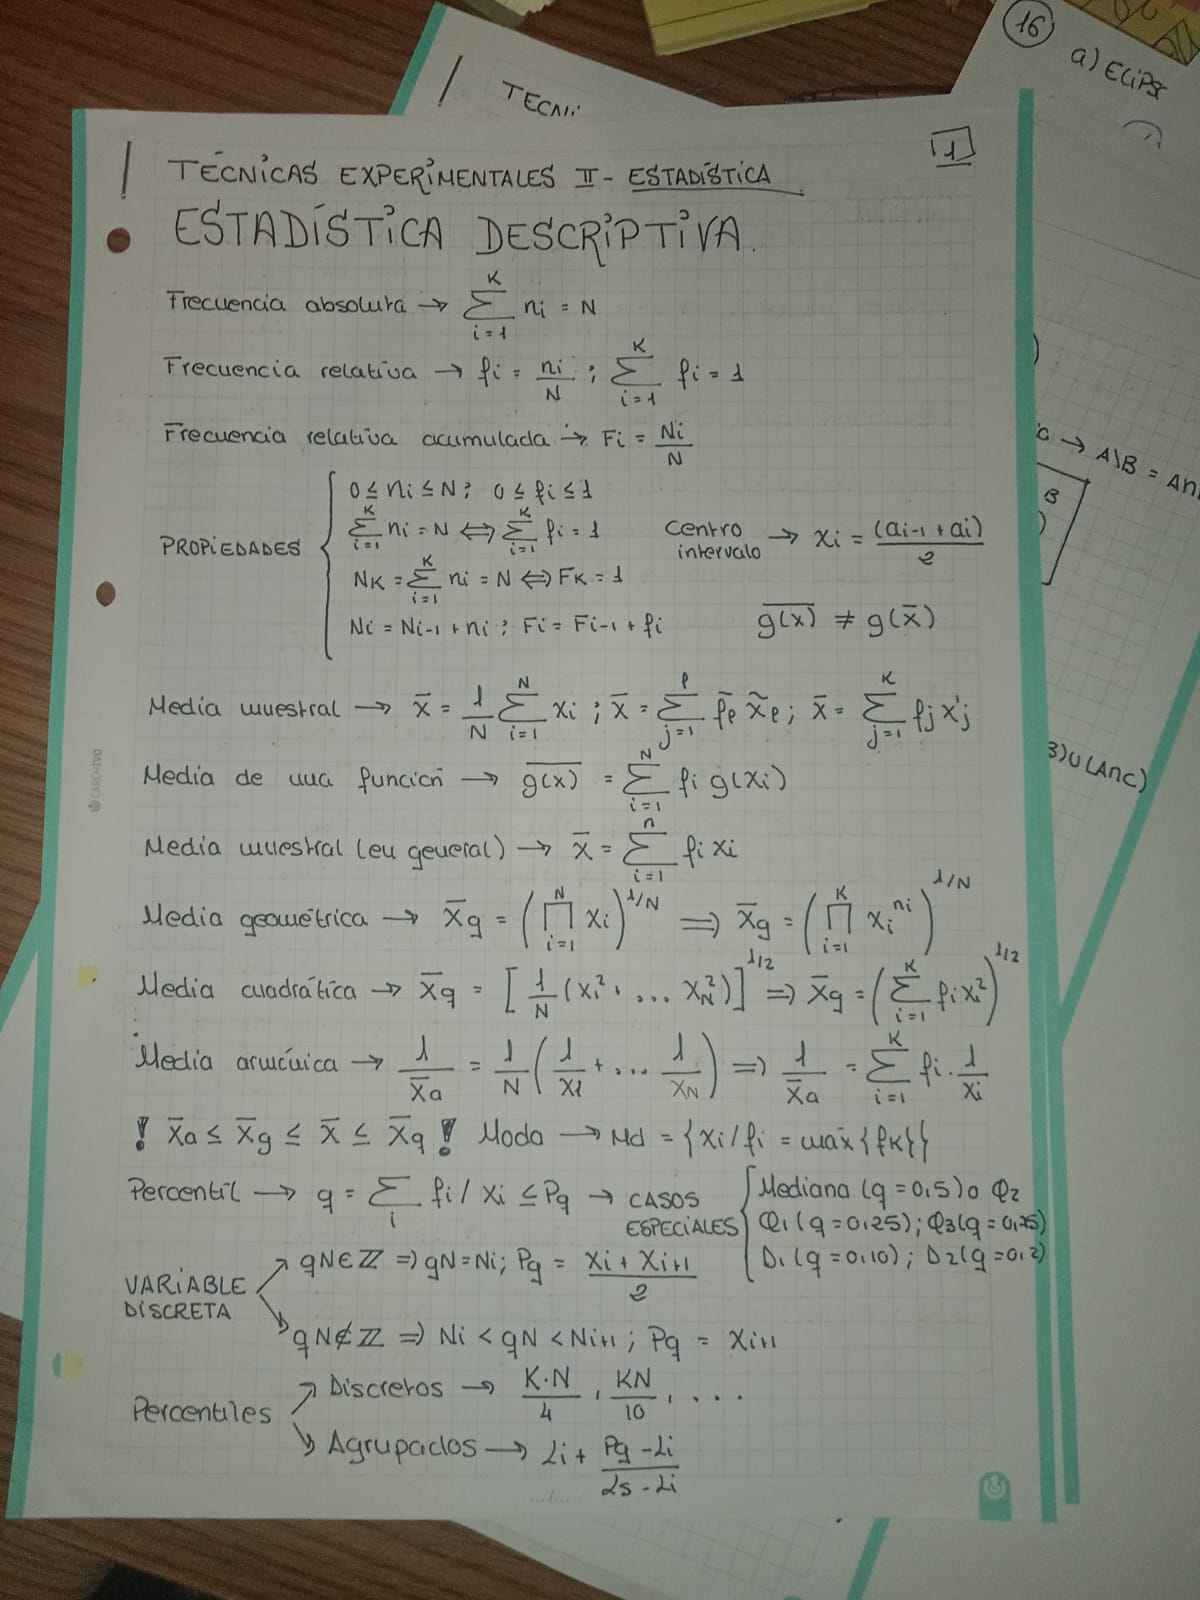 TÉCNICAS EXPERIMENTALES II - ESTADÍSTICA
1
ESTADÍSTICA DESCRIPTIVA.
Frecuencia absoluta → ∑_{i=1}^{K} ni = N
Frecuencia relativa → fi = ni/N ; ∑_{i=1}^{K} fi = 1
Frecuencia relativa acumulada → Fi = Ni/N
PROPIEDADES
0 ≤ ni ≤ N ; 0 ≤ fi ≤ 1
∑_{i=1}^{K} ni = N ⟺ ∑_{i=1}^{K} fi = 1
NK = ∑_{i=1}^{K} ni = N ⟺ FK = 1
Ni = Ni-1 + ni ; Fi = Fi-1 + fi
Centro intervalo → xi = (ai-1 + ai)/2
\overline{g(x)} ≠ g(x̄)
Media muestral → x̄ = 1/N ∑_{i=1}^{N} xi ; x̄ = ∑_{j=1}^{l} f̄e x̃e ; x̄ = ∑_{j=1}^{K} fj x'j
Media de una función → \overline{g(x)} = ∑_{i=1}^{N} fi g(xi)
Media muestral (en general) → x̄ = ∑_{i=1}^{n} fi xi
Media geométrica → X̄g = (∏_{i=1}^{N} xi)^{1/N} ⟹ X̄g = (∏_{i=1}^{K} xi^{ni})^{1/N}
Media cuadrática → X̄q = [1/N (xi² + ... XN²)]^{1/2} ⟹ X̄q = (∑_{i=1}^{K} fi xi²)^{1/2}
Media armónica → 1/X̄a = 1/N (1/X1 + ... 1/XN) ⟹ 1/X̄a = ∑_{i=1}^{K} fi · 1/xi
! X̄a ≤ X̄g ≤ X̄ ≤ X̄q ! Moda → Md = {xi / fi = max {fK}}
Percentil → q = ∑_{i} fi / xi ≤ Pq → CASOS ESPECIALES
Mediana (q = 0,5) o Q2
Q1 (q = 0,25) ; Q3 (q = 0,75)
D1 (q = 0,10) ; D2 (q = 0,2)
VARIABLE DISCRETA
qN ∈ ℤ ⟹ qN = Ni ; Pq = (Xi + Xi+1)/2
qN ∉ ℤ ⟹ Ni < qN < Ni+1 ; Pq = Xi+1
Percentiles
Discretos → K·N/4 , KN/10 , ...
Agrupados → Li + (Pq - Li)/(Ls - Li)
.../...
CARCHIVO
TECNI
16
a) ELIPSE
→ A\B = An
B
B)U(AnC)